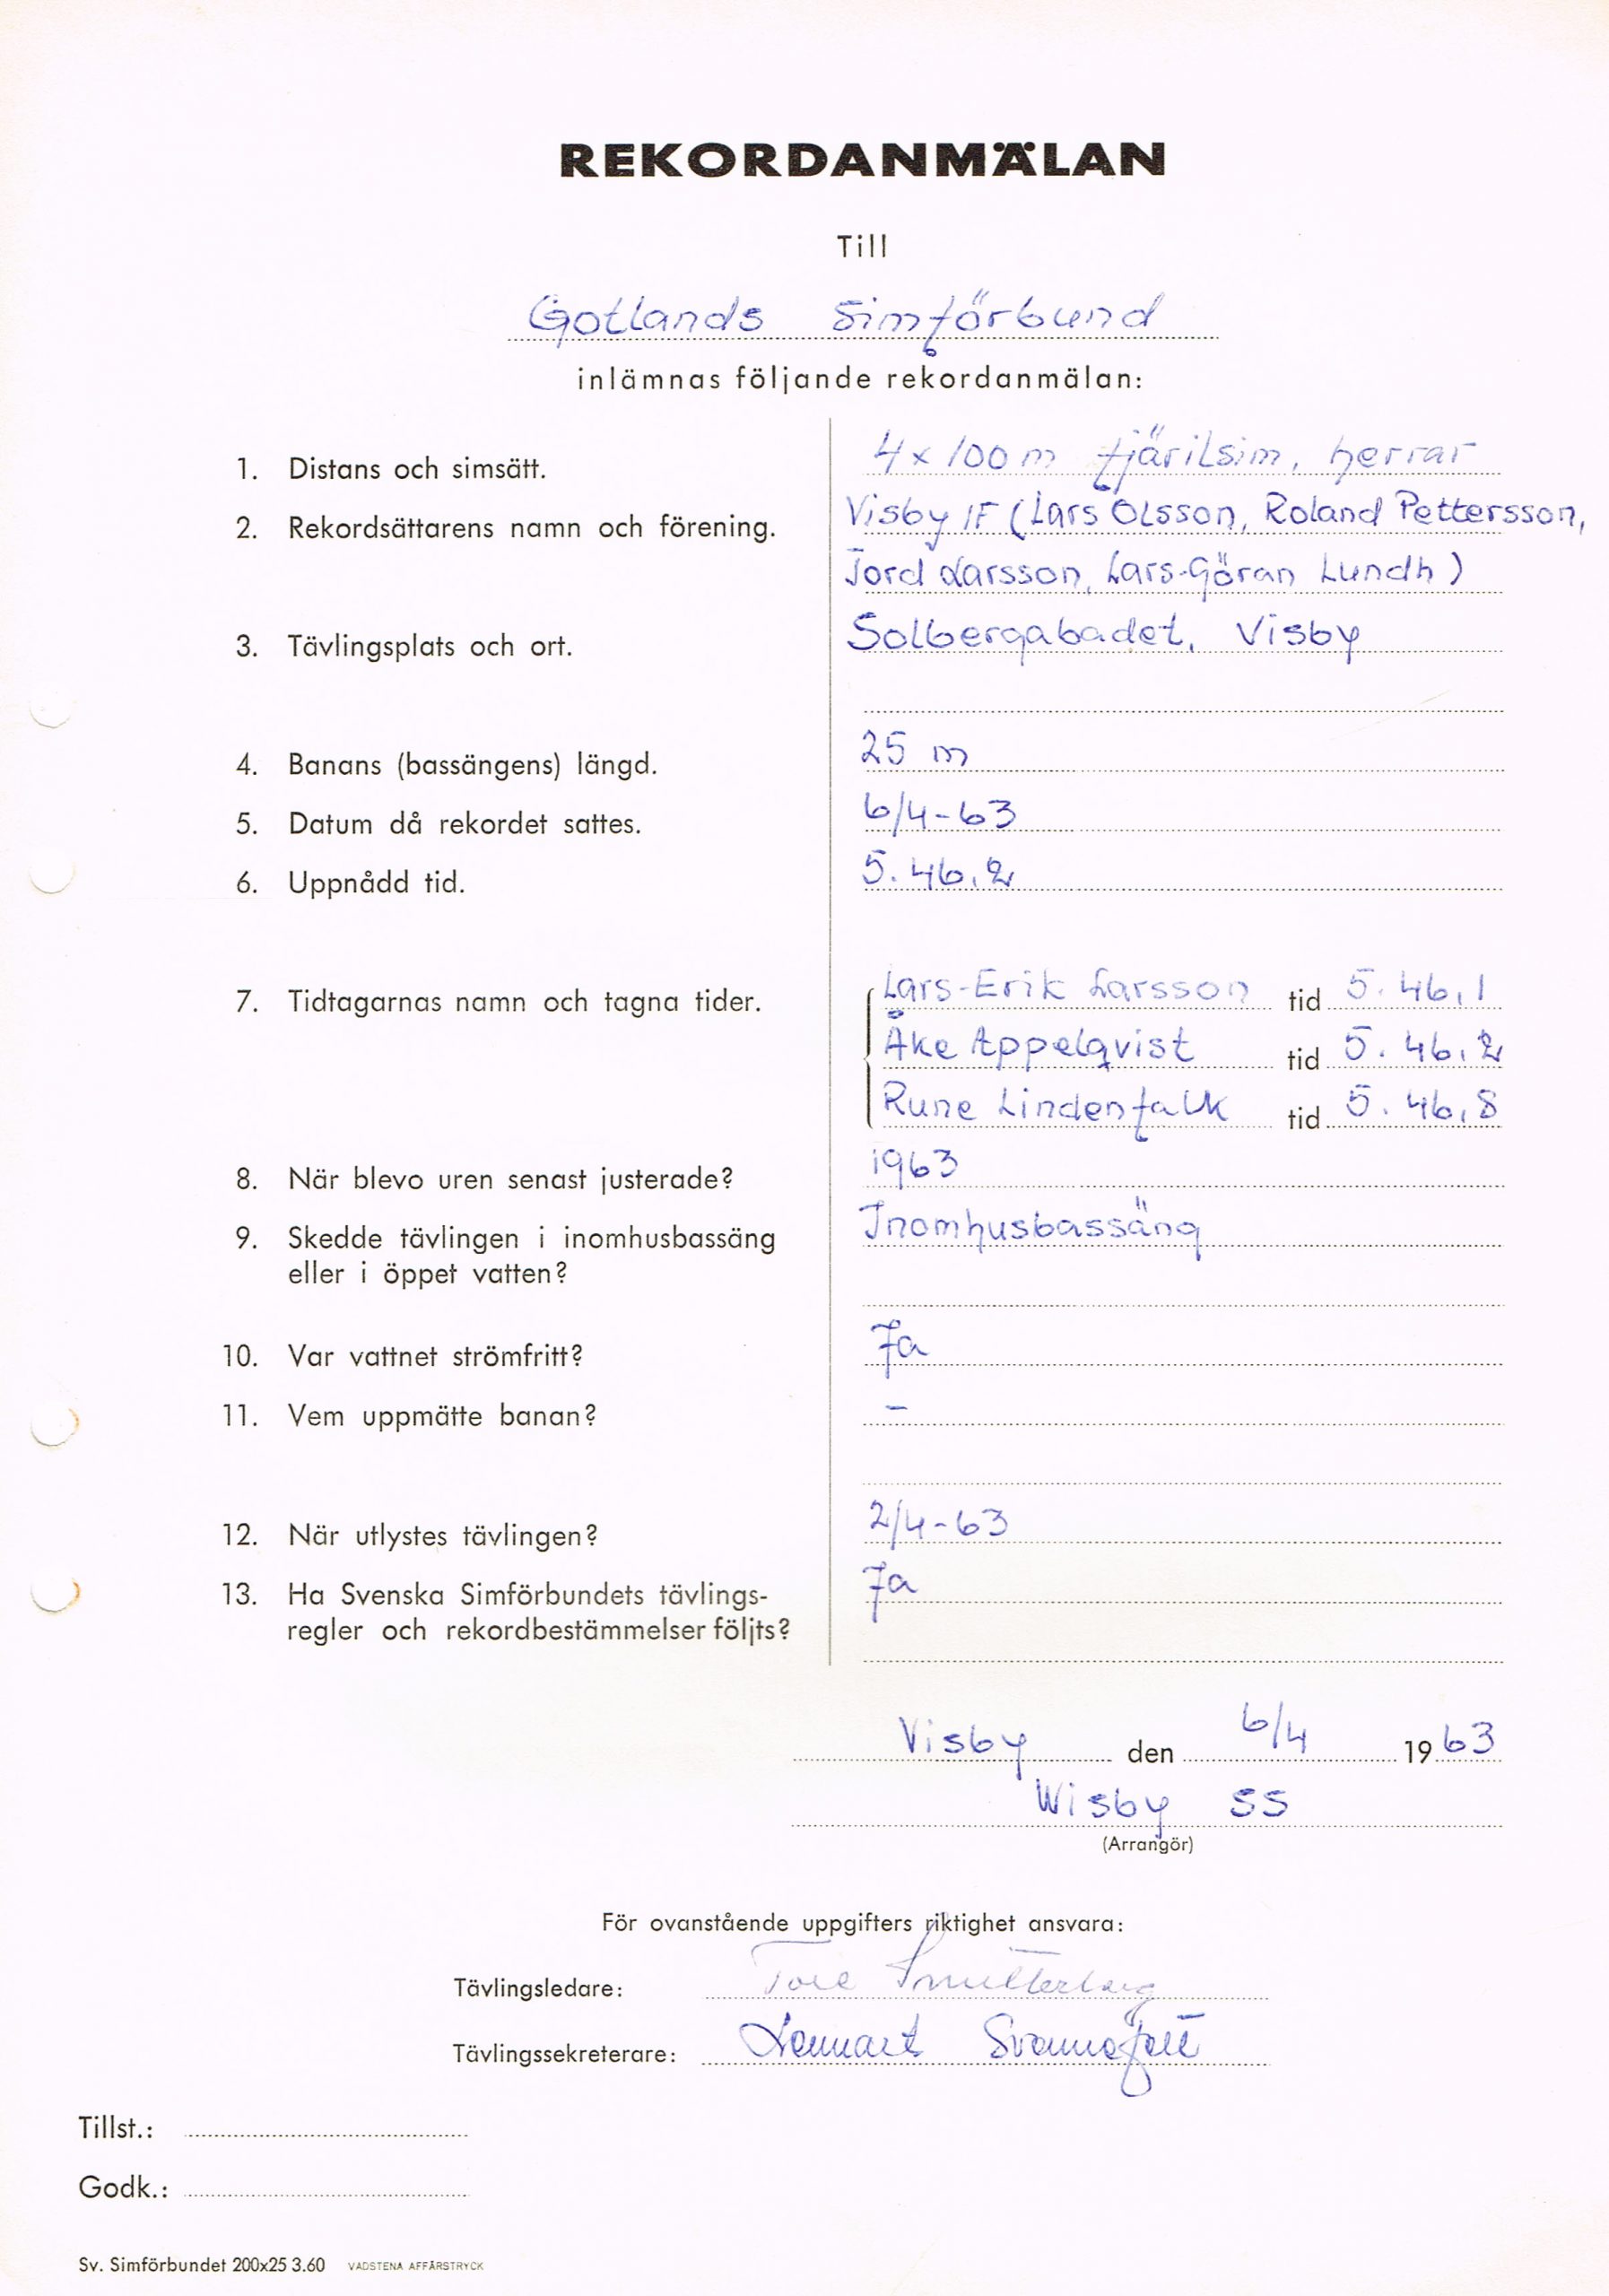 REKORDANMÄLAN
Till
Gotlands Simförbund
inlämnas följande rekordanmälan:
1. Distans och simsätt. 4 x 100 m fjärilsim, herrar
2. Rekordsättarens namn och förening. Visby IF (Lars Olsson, Roland Pettersson,
Tord Larsson, Lars-Göran Lundh)
3. Tävlingsplats och ort. Solbergabadet, Visby
4. Banans (bassängens) längd. 25 m
5. Datum då rekordet sattes. 6/4-63
6. Uppnådd tid. 5.46,2
7. Tidtagarnas namn och tagna tider. Lars-Erik Larsson tid 5.46,1
Åke Appelqvist tid 5.46,2
Rune Lindenfalk tid 5.46,8
8. När blevo uren senast justerade? 1963
9. Skedde tävlingen i inomhusbassäng Inomhusbassäng
eller i öppet vatten?
10. Var vattnet strömfritt? Ja
11. Vem uppmätte banan? -
12. När utlystes tävlingen? 2/4-63
13. Ha Svenska Simförbundets tävlings- Ja
regler och rekordbestämmelser följts?
Visby den 6/4 1963
Wisby SS
(Arrangör)
För ovanstående uppgifters riktighet ansvara:
Tävlingsledare: Tore Smitterberg
Tävlingssekreterare: Lennart
Tillst.:
Godk.:
Sv. Simförbundet 200x25 3.60 VADSTENA AFFÄRSTRYCK